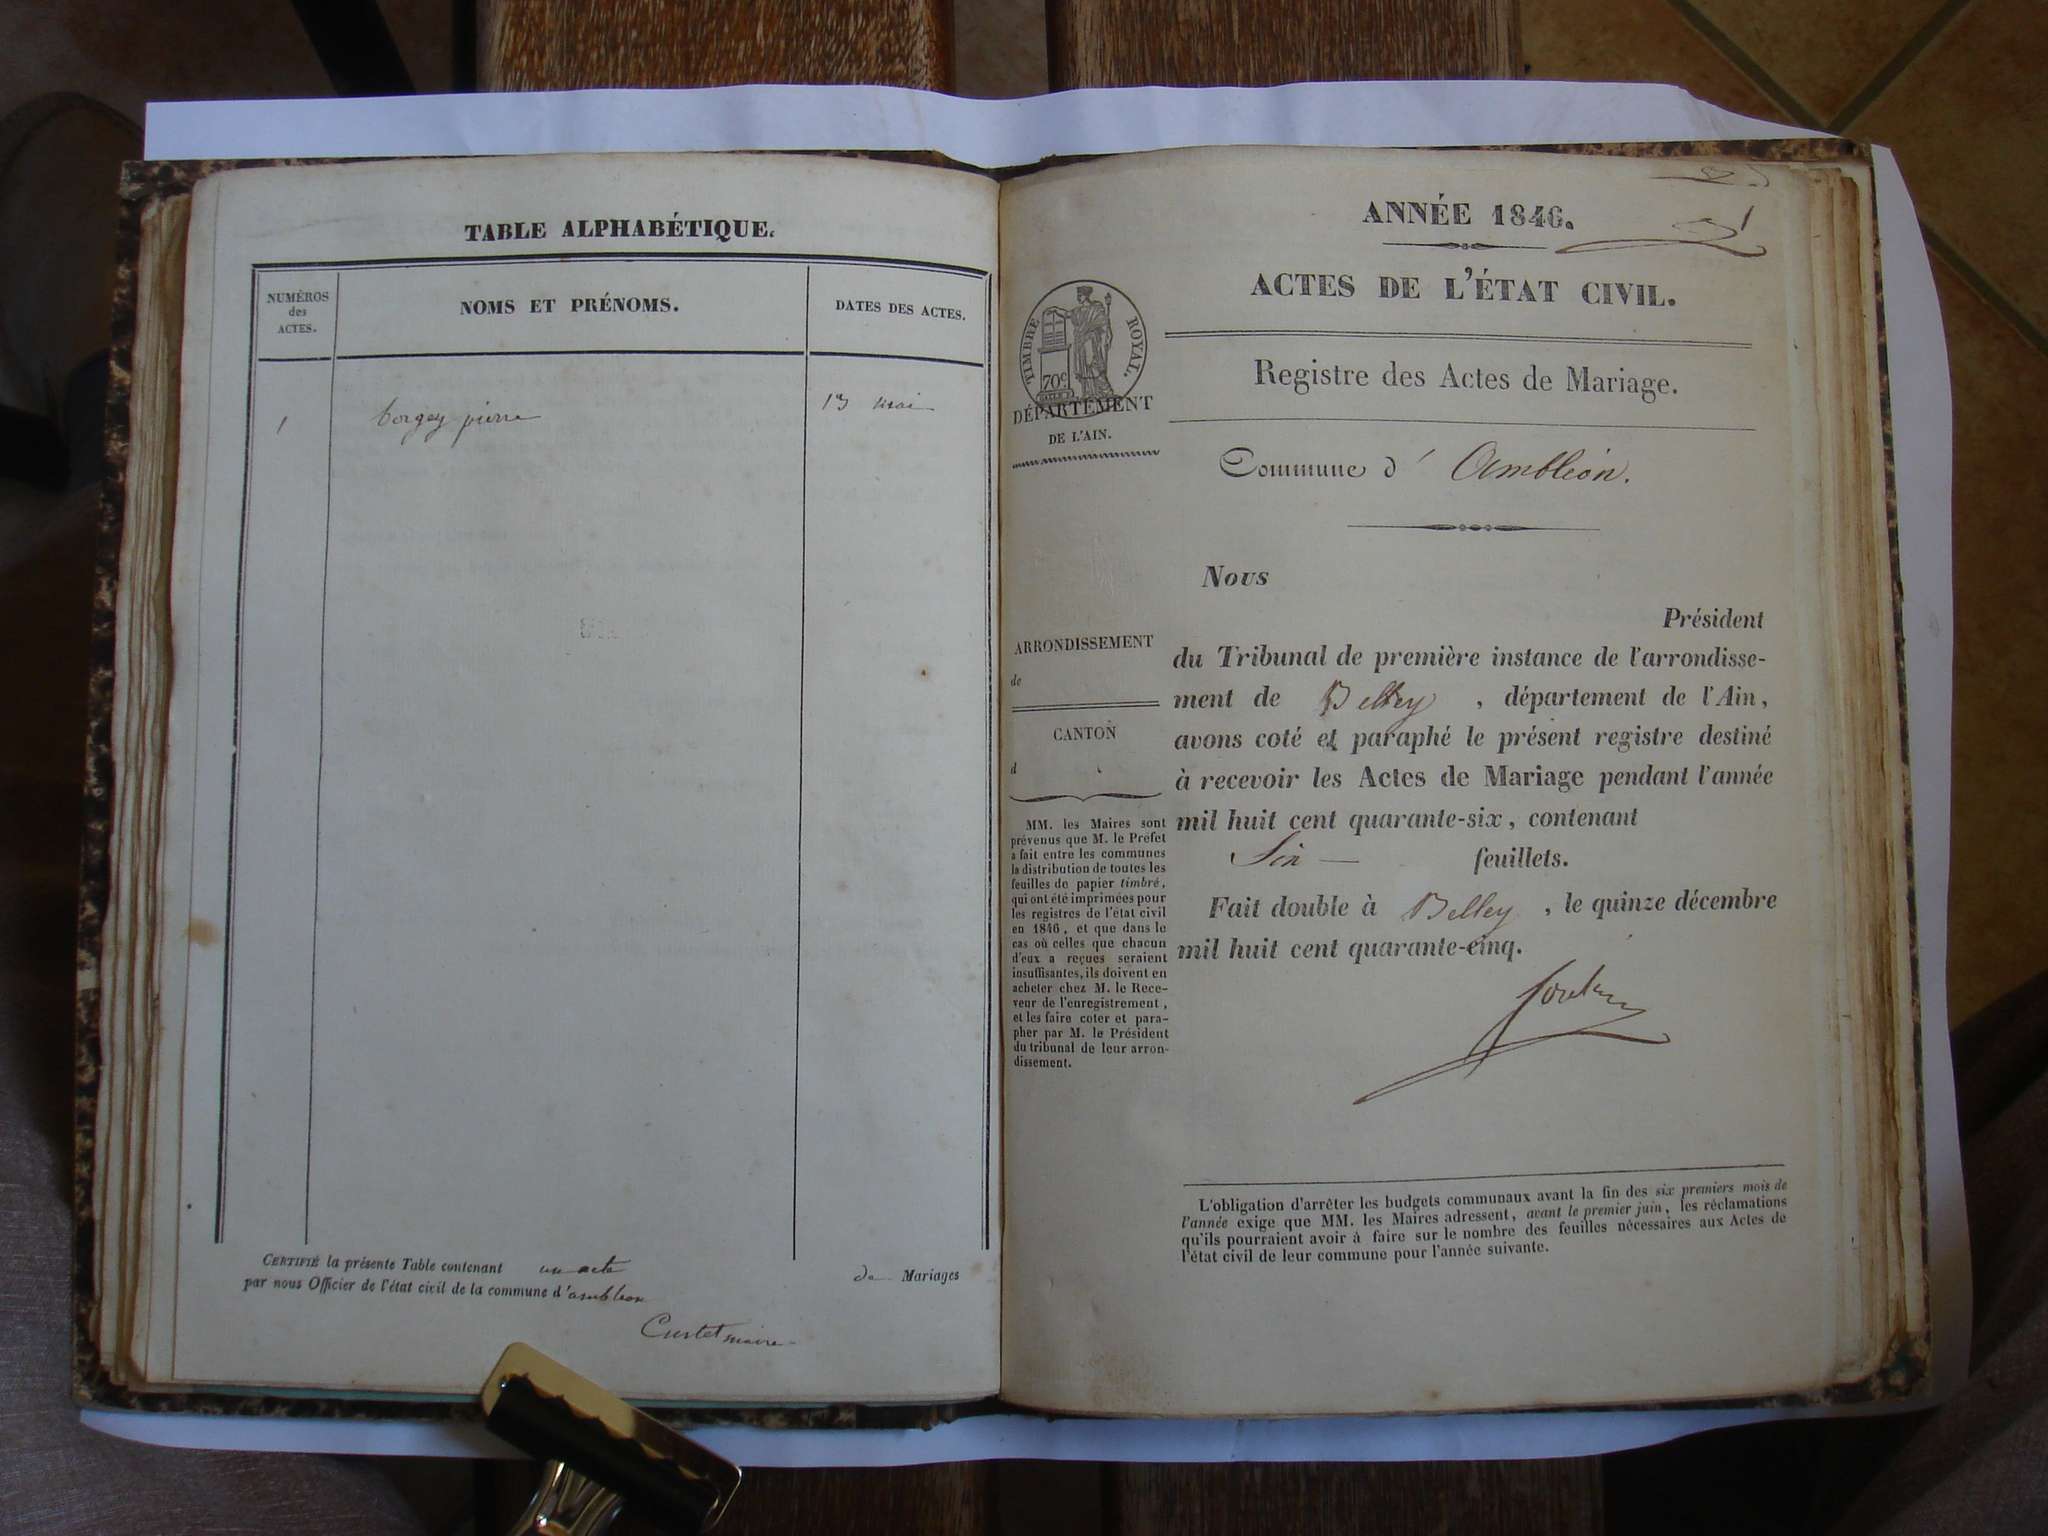 TABLE ALPHABÉTIQUE.
NUMÉROS
des
ACTES.
NOMS ET PRÉNOMS.
DATES DES ACTES.
1
borgey pierre
13 mai
CERTIFIÉ la présente Table contenant un acte de Mariages
par nous Officier de l'état civil de la commune d'ambleon
Curtet maire
ANNÉE 1846.
1
ACTES DE L'ÉTAT CIVIL.
TIMBRE ROYAL.
70c
DÉPARTEMENT
DE L'AIN.
Registre des Actes de Mariage.
Commune d' Ambléon.
ARRONDISSEMENT
de
CANTON
d
MM. les Maires sont
prévenus que M. le Préfet
a fait entre les communes
la distribution de toutes les
feuilles de papier timbré,
qui ont été imprimées pour
les registres de l'état civil
en 1846, et que dans le
cas où celles que chacun
d'eux a reçues seraient
insuffisantes, ils doivent en
acheter chez M. le Rece-
veur de l'enregistrement,
et les faire coter et para-
pher par M. le Président
du tribunal de leur arron-
dissement.
Nous
Président
du Tribunal de première instance de l'arrondisse-
ment de Belley, département de l'Ain,
avons coté et paraphé le présent registre destiné
à recevoir les Actes de Mariage pendant l'année
mil huit cent quarante-six, contenant
Six feuillets.
Fait double à Belley, le quinze décembre
mil huit cent quarante-cinq.
L'obligation d'arrêter les budgets communaux avant la fin des six premiers mois de
l'année exige que MM. les Maires adressent, avant le premier juin, les réclamations
qu'ils pourraient avoir à faire sur le nombre des feuilles nécessaires aux Actes de
l'état civil de leur commune pour l'année suivante.